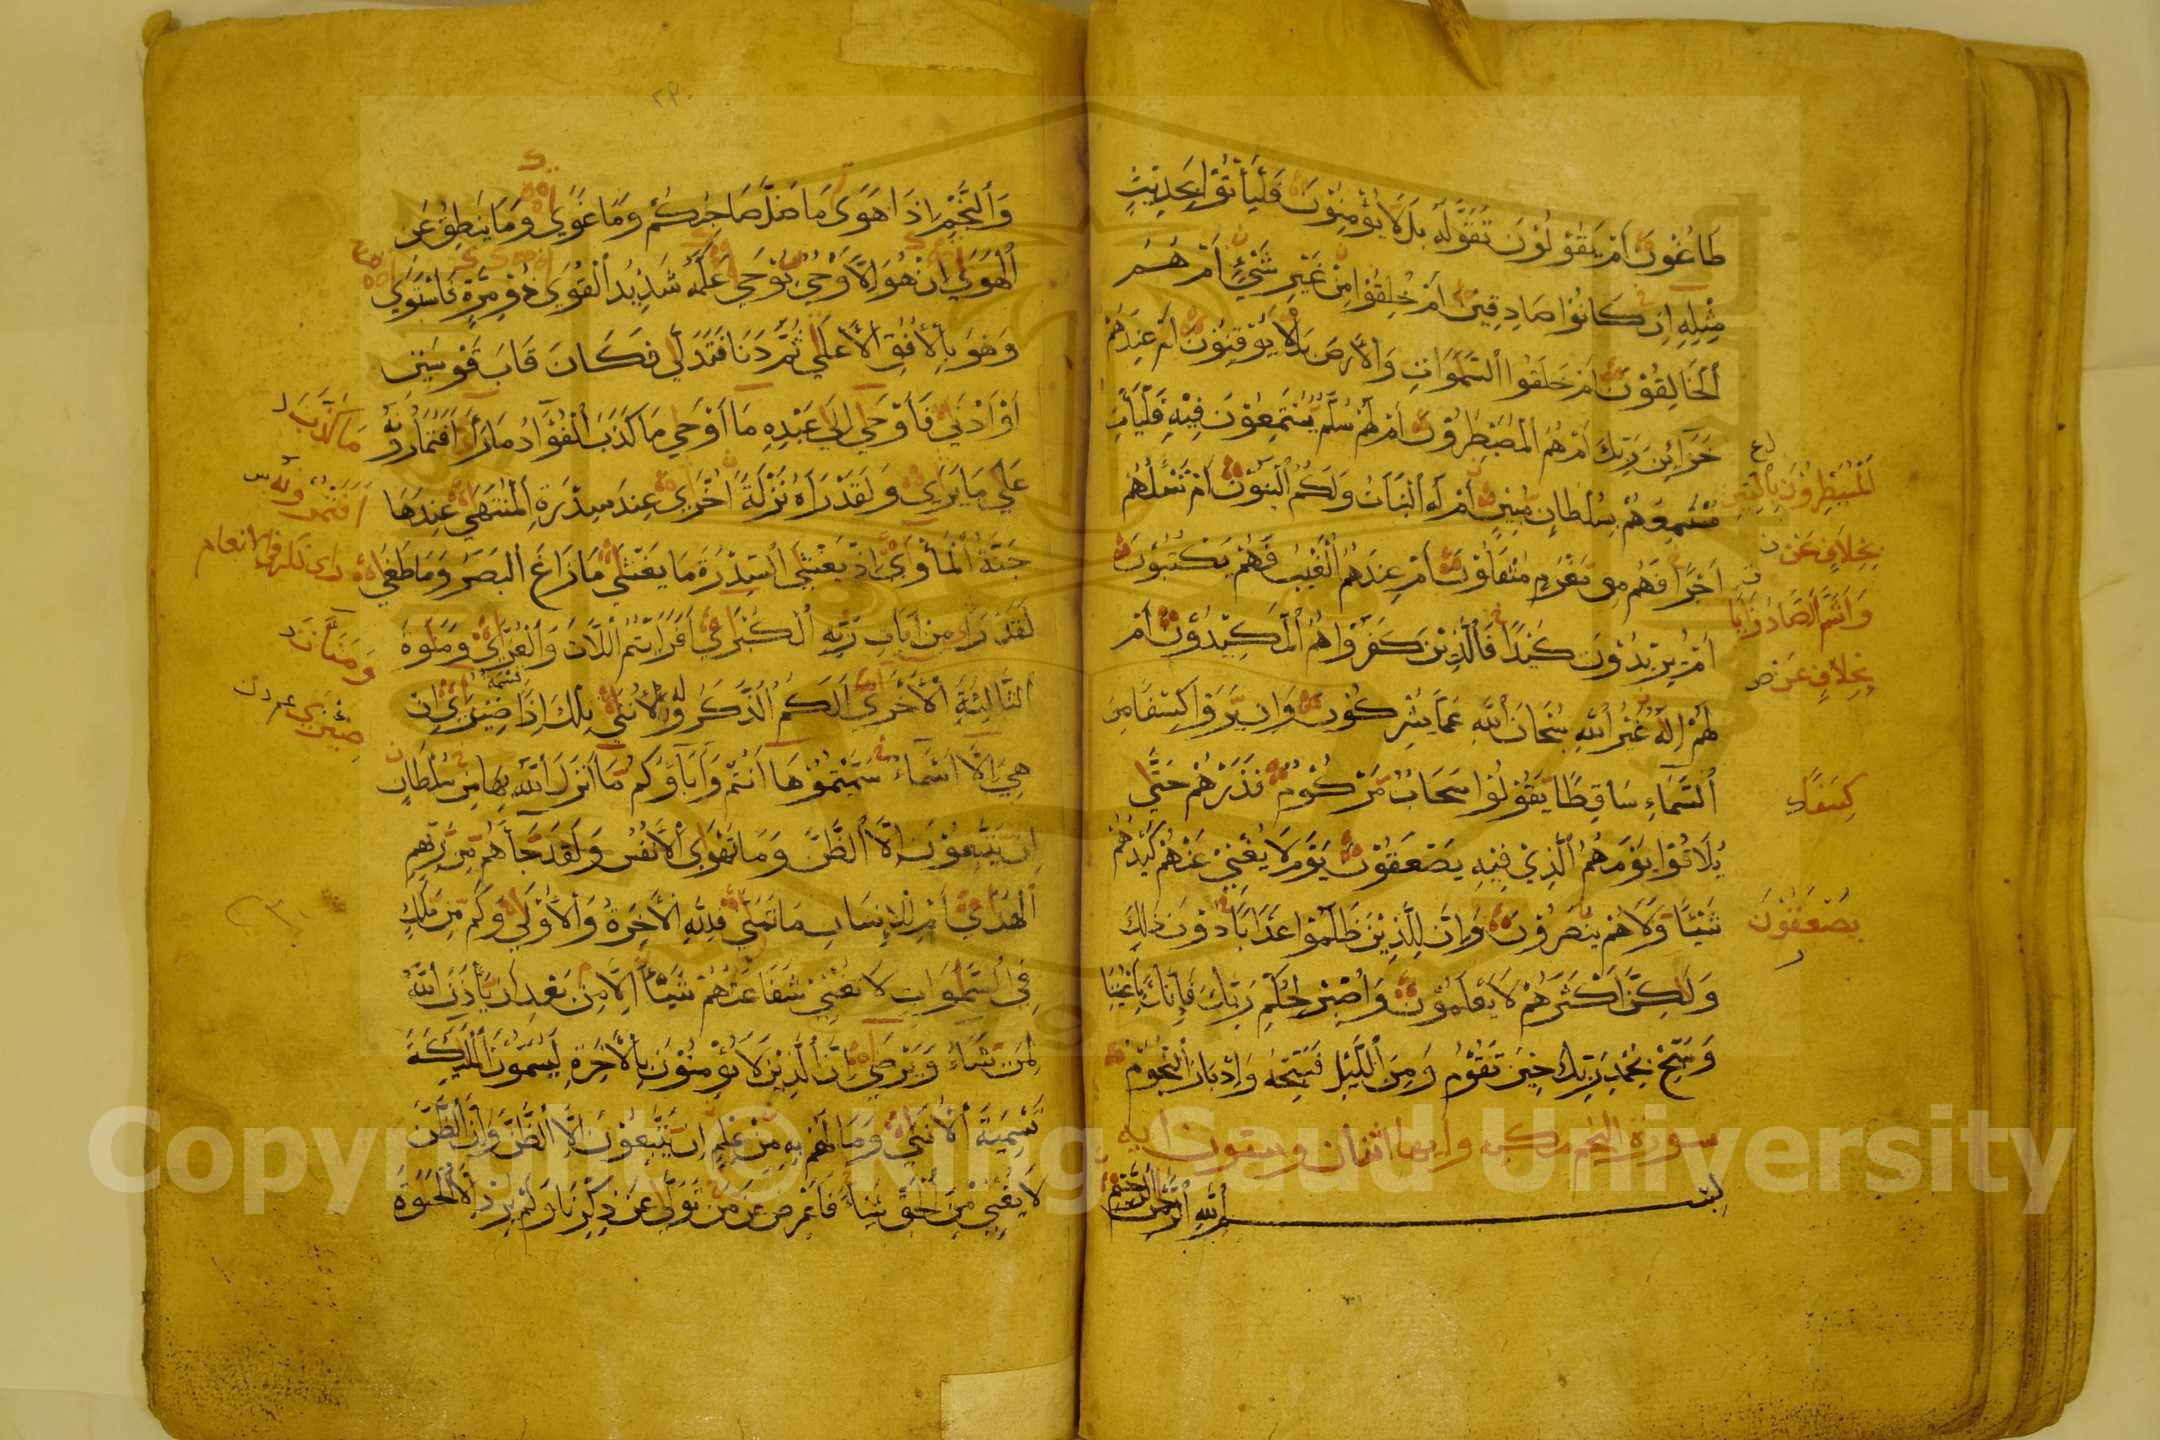 طَاغُوْنَ اَمْ يَقُوْلُوْنَ تَقَوَّلَهٗ بَلْ لَا يُؤْمِنُوْنَ فَلْيَأْتُوْا بِحَدِيْثٍ
مِثْلِهٖ اِنْ كَانُوْا صَادِقِيْنَ اَمْ خُلِقُوْا مِنْ غَيْرِ شَيْءٍ اَمْ هُمُ
الْخَالِقُوْنَ اَمْ خَلَقُوا السَّمٰوَاتِ وَالْاَرْضَ بَلْ لَا يُوْقِنُوْنَ اَمْ عِنْدَهُمْ
خَزَآئِنُ رَبِّكَ اَمْ هُمُ الْمُصَيْطِرُوْنَ اَمْ لَهُمْ سُلَّمٌ يَسْتَمِعُوْنَ فِيْهِ فَلْيَأْتِ
مُسْتَمِعُهُمْ بِسُلْطَانٍ مُبِيْنٍ اَمْ لَهُ الْبَنَاتُ وَلَكُمُ الْبَنُوْنَ اَمْ تَسْـَٔلُهُمْ
اَجْرًا فَهُمْ مِنْ مَغْرَمٍ مُثْقَلُوْنَ اَمْ عِنْدَهُمُ الْغَيْبُ فَهُمْ يَكْتُبُوْنَ
اَمْ يُرِيْدُوْنَ كَيْدًا فَالَّذِيْنَ كَفَرُوْا هُمُ الْمَكِيْدُوْنَ اَمْ
لَهُمْ اِلٰهٌ غَيْرُ اللّٰهِ سُبْحَانَ اللّٰهِ عَمَّا يُشْرِكُوْنَ وَاِنْ يَرَوْا كِسْفًا مِنَ
السَّمَآءِ سَاقِطًا يَقُوْلُوْا سَحَابٌ مَرْكُوْمٌ فَذَرْهُمْ حَتّٰى
يُلَاقُوْا يَوْمَهُمُ الَّذِيْ فِيْهِ يَصْعَقُوْنَ يَوْمَ لَا يُغْنِيْ عَنْهُمْ كَيْدُهُمْ
شَيْئًا وَلَا هُمْ يُنْصَرُوْنَ وَاِنَّ لِلَّذِيْنَ ظَلَمُوْا عَذَابًا دُوْنَ ذٰلِكَ
وَلٰكِنَّ اَكْثَرَهُمْ لَا يَعْلَمُوْنَ وَاصْبِرْ لِحُكْمِ رَبِّكَ فَاِنَّكَ بِاَعْيُنِنَا
وَسَبِّحْ بِحَمْدِ رَبِّكَ حِيْنَ تَقُوْمُ وَمِنَ الَّيْلِ فَسَبِّحْهُ وَاِدْبَارَ النُّجُوْمِ
سورة النجم مكية وايها اثنان وستون اية
بِسْمِ اللّٰهِ الرَّحْمٰنِ الرَّحِيْمِ
اَلْمُسَيْطِرُوْنَ بِالسِّيْنِ
بِخِلَافٍ عَنْ
وَاَشَمَّ الصَّادَ زَايًا
بِخِلَافٍ عَنْ ض
كِسَفًا
يَصْعَقُوْنَ
٢٩٠
وَالنَّجْمِ اِذَا هَوٰى مَا ضَلَّ صَاحِبُكُمْ وَمَا غَوٰى وَمَا يَنْطِقُ عَنِ
الْهَوٰى اِنْ هُوَ اِلَّا وَحْيٌ يُوْحٰى عَلَّمَهٗ شَدِيْدُ الْقُوٰى ذُوْ مِرَّةٍ فَاسْتَوٰى
وَهُوَ بِالْاُفُقِ الْاَعْلٰى ثُمَّ دَنَا فَتَدَلّٰى فَكَانَ قَابَ قَوْسَيْنِ
اَوْ اَدْنٰى فَاَوْحٰى اِلٰى عَبْدِهٖ مَا اَوْحٰى مَا كَذَبَ الْفُؤَادُ مَا رَاٰى اَفَتُمَارُوْنَهٗ
عَلٰى مَا يَرٰى وَلَقَدْ رَاٰهُ نَزْلَةً اُخْرٰى عِنْدَ سِدْرَةِ الْمُنْتَهٰى عِنْدَهَا
جَنَّةُ الْمَأْوٰى اِذْ يَغْشَى السِّدْرَةَ مَا يَغْشٰى مَا زَاغَ الْبَصَرُ وَمَا طَغٰى
لَقَدْ رَاٰى مِنْ اٰيَاتِ رَبِّهِ الْكُبْرٰى اَفَرَاَيْتُمُ اللَّاتَ وَالْعُزّٰى وَمَنٰوةَ
الثَّالِثَةَ الْاُخْرٰى اَلَكُمُ الذَّكَرُ وَلَهُ الْاُنْثٰى تِلْكَ اِذًا قِسْمَةٌ ضِيْزٰى اِنْ
هِيَ اِلَّا اَسْمَآءٌ سَمَّيْتُمُوْهَا اَنْتُمْ وَاٰبَآؤُكُمْ مَا اَنْزَلَ اللّٰهُ بِهَا مِنْ سُلْطَانٍ
اِنْ يَتَّبِعُوْنَ اِلَّا الظَّنَّ وَمَا تَهْوَى الْاَنْفُسُ وَلَقَدْ جَآءَهُمْ مِنْ رَبِّهِمُ
الْهُدٰى اَمْ لِلْاِنْسَانِ مَا تَمَنّٰى فَلِلّٰهِ الْاٰخِرَةُ وَالْاُوْلٰى وَكَمْ مِنْ مَلَكٍ
فِي السَّمٰوَاتِ لَا تُغْنِيْ شَفَاعَتُهُمْ شَيْئًا اِلَّا مِنْ بَعْدِ اَنْ يَأْذَنَ اللّٰهُ
لِمَنْ يَشَآءُ وَيَرْضٰى اِنَّ الَّذِيْنَ لَا يُؤْمِنُوْنَ بِالْاٰخِرَةِ لَيُسَمُّوْنَ الْمَلٰٓئِكَةَ
تَسْمِيَةَ الْاُنْثٰى وَمَا لَهُمْ بِهٖ مِنْ عِلْمٍ اِنْ يَتَّبِعُوْنَ اِلَّا الظَّنَّ وَاِنَّ الظَّنَّ
لَا يُغْنِيْ مِنَ الْحَقِّ شَيْئًا فَاَعْرِضْ عَنْ مَنْ تَوَلّٰى عَنْ ذِكْرِنَا وَلَمْ يُرِدْ اِلَّا الْحَيٰوةَ
مَا كَذَّبَ
اَفَتَمْرُوْنَهٗ
راى ذكر في الانعام
وَمَنَآءَةَ
ضِئْزٰى
٢٣٠
Copyright © King Saud University